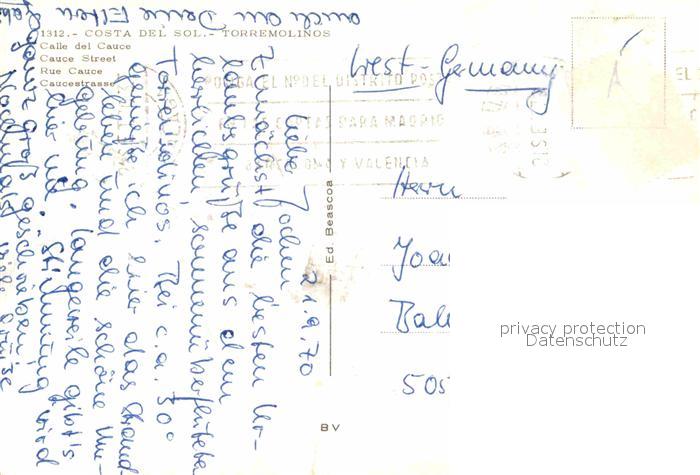 1312.- COSTA DEL SOL.- TORREMOLINOS
Calle del Cauce
Cauce Street
Rue Cauce
Caucestrasse
PONGA EL Nº DEL DISTRITO POSTAL
EN LAS CARTAS PARA MADRID
BARCELONA Y VALENCIA
Ed. Beascoa
BV
West-Germany
Herrn
Joa
Bal
505
21.9.70
Lieber Jochen
Zunächst die besten Ur-
laubsgrüße aus dem
herrlichen, sonnenüberfluteten
Torremolinos. Bei c.a. 30°
genieße ich hier das Strand-
leben und die schöne Um-
gebung. Langeweile gibt's
hier nie. Stimmung wird
ganz groß geschrieben.
Nochmals viele Grüße
auch an Deine Eltern
privacy protection
Datenschutz